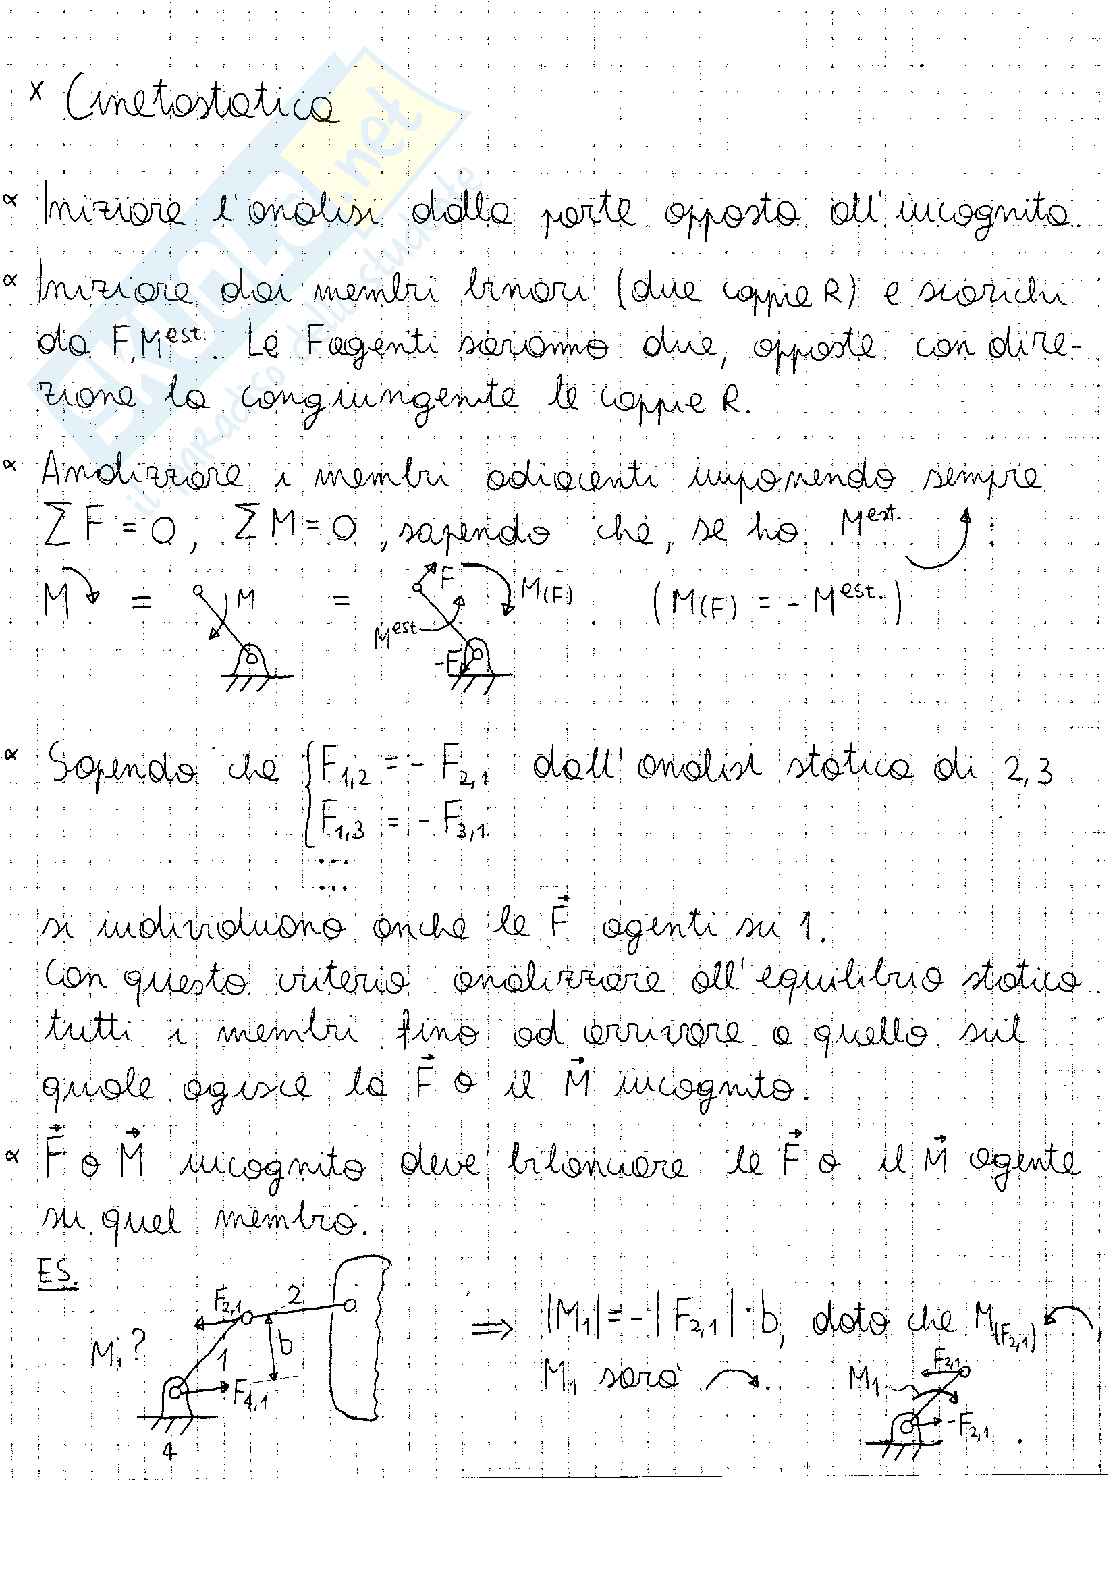 x Cinetostatica
∝ Iniziare l'analisi dalla parte opposta all'incognita.
∝ Iniziare dai membri binari (due coppie R) e scarichi
da F, M^est. Le F agenti saranno due, opposte con dire-
zione la congiungente le coppie R.
∝ Analizzare i membri adiacenti imponendo sempre
ΣF = 0, ΣM = 0, sapendo che, se ho M^est. :
M = M = F M(F) (M(F) = - M^est.)
M^est
-F
∝ Sapendo che { F1,2 = - F2,1 dall'analisi statica di 2,3
F1,3 = - F3,1
...
...
si individuano anche le F⃗ agenti su 1.
Con questo criterio analizzare all'equilibrio statico
tutti i membri fino ad arrivare a quello sul
quale agisce la F⃗ o il M⃗ incognito.
∝ F⃗ o M⃗ incognito deve bilanciare le F⃗ o il M⃗ agente
su quel membro.
ES.
F2,1 2
M1? 1 b
F4,1
4
⇒ |M1| = - |F2,1| · b, dato che M(F2,1) ,
M1 sarà .
F2,1
M1
-F2,1 .
Skuola.net